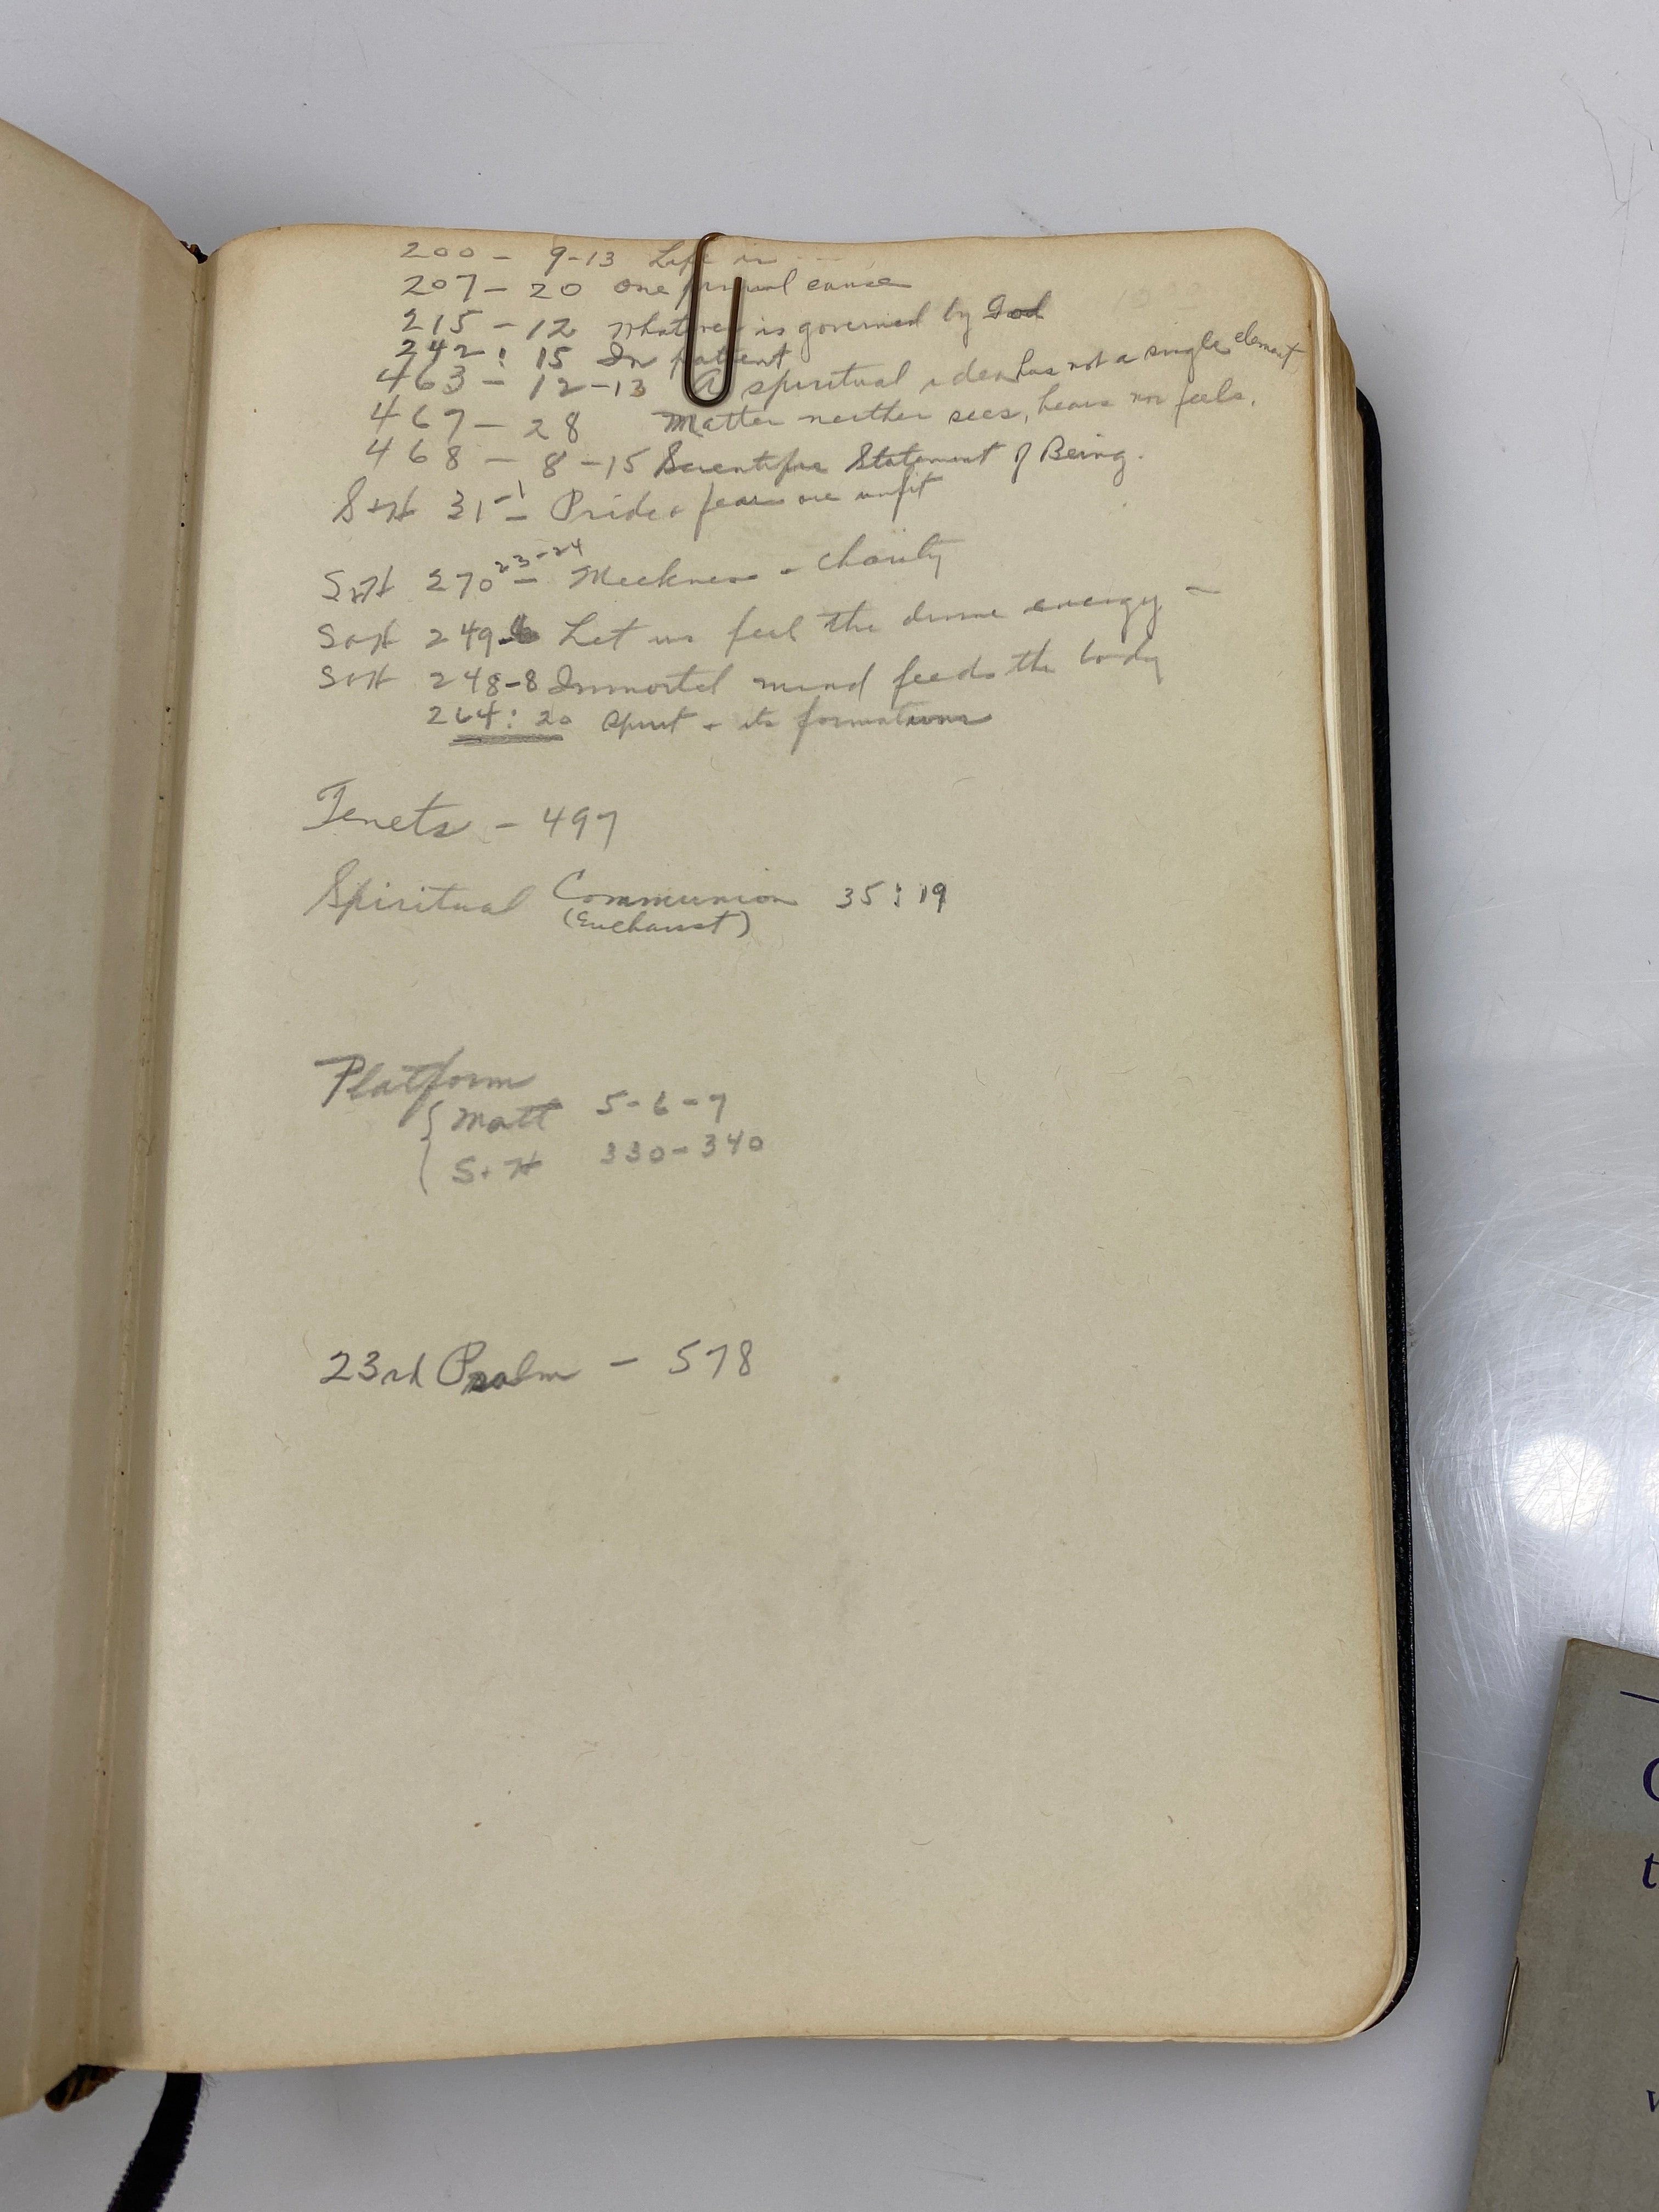 200 - 9-13 Life is - - -
207 - 20 One primal cause
215 - 12 Whatever is governed by God
242 : 15 In patient
463 - 12-13 A spiritual idea has not a single element
467 - 28 Matter neither sees, hears nor feels.
468 - 8-15 Scientific Statement of Being.
S+H 31-1 - Pride + fear are unfit
S+H 270 23-24 - Meekness + charity
S+H 249-6 Let us feel the divine energy -
S+H 248-8 Immortal mind feeds the body
264 : 20 Spirit + its formations
Tenets - 497
Spiritual Communion 35 : 19
(Eucharist)
Platform
{ Matt 5-6-7
S+H 330-340
23rd Psalm - 578